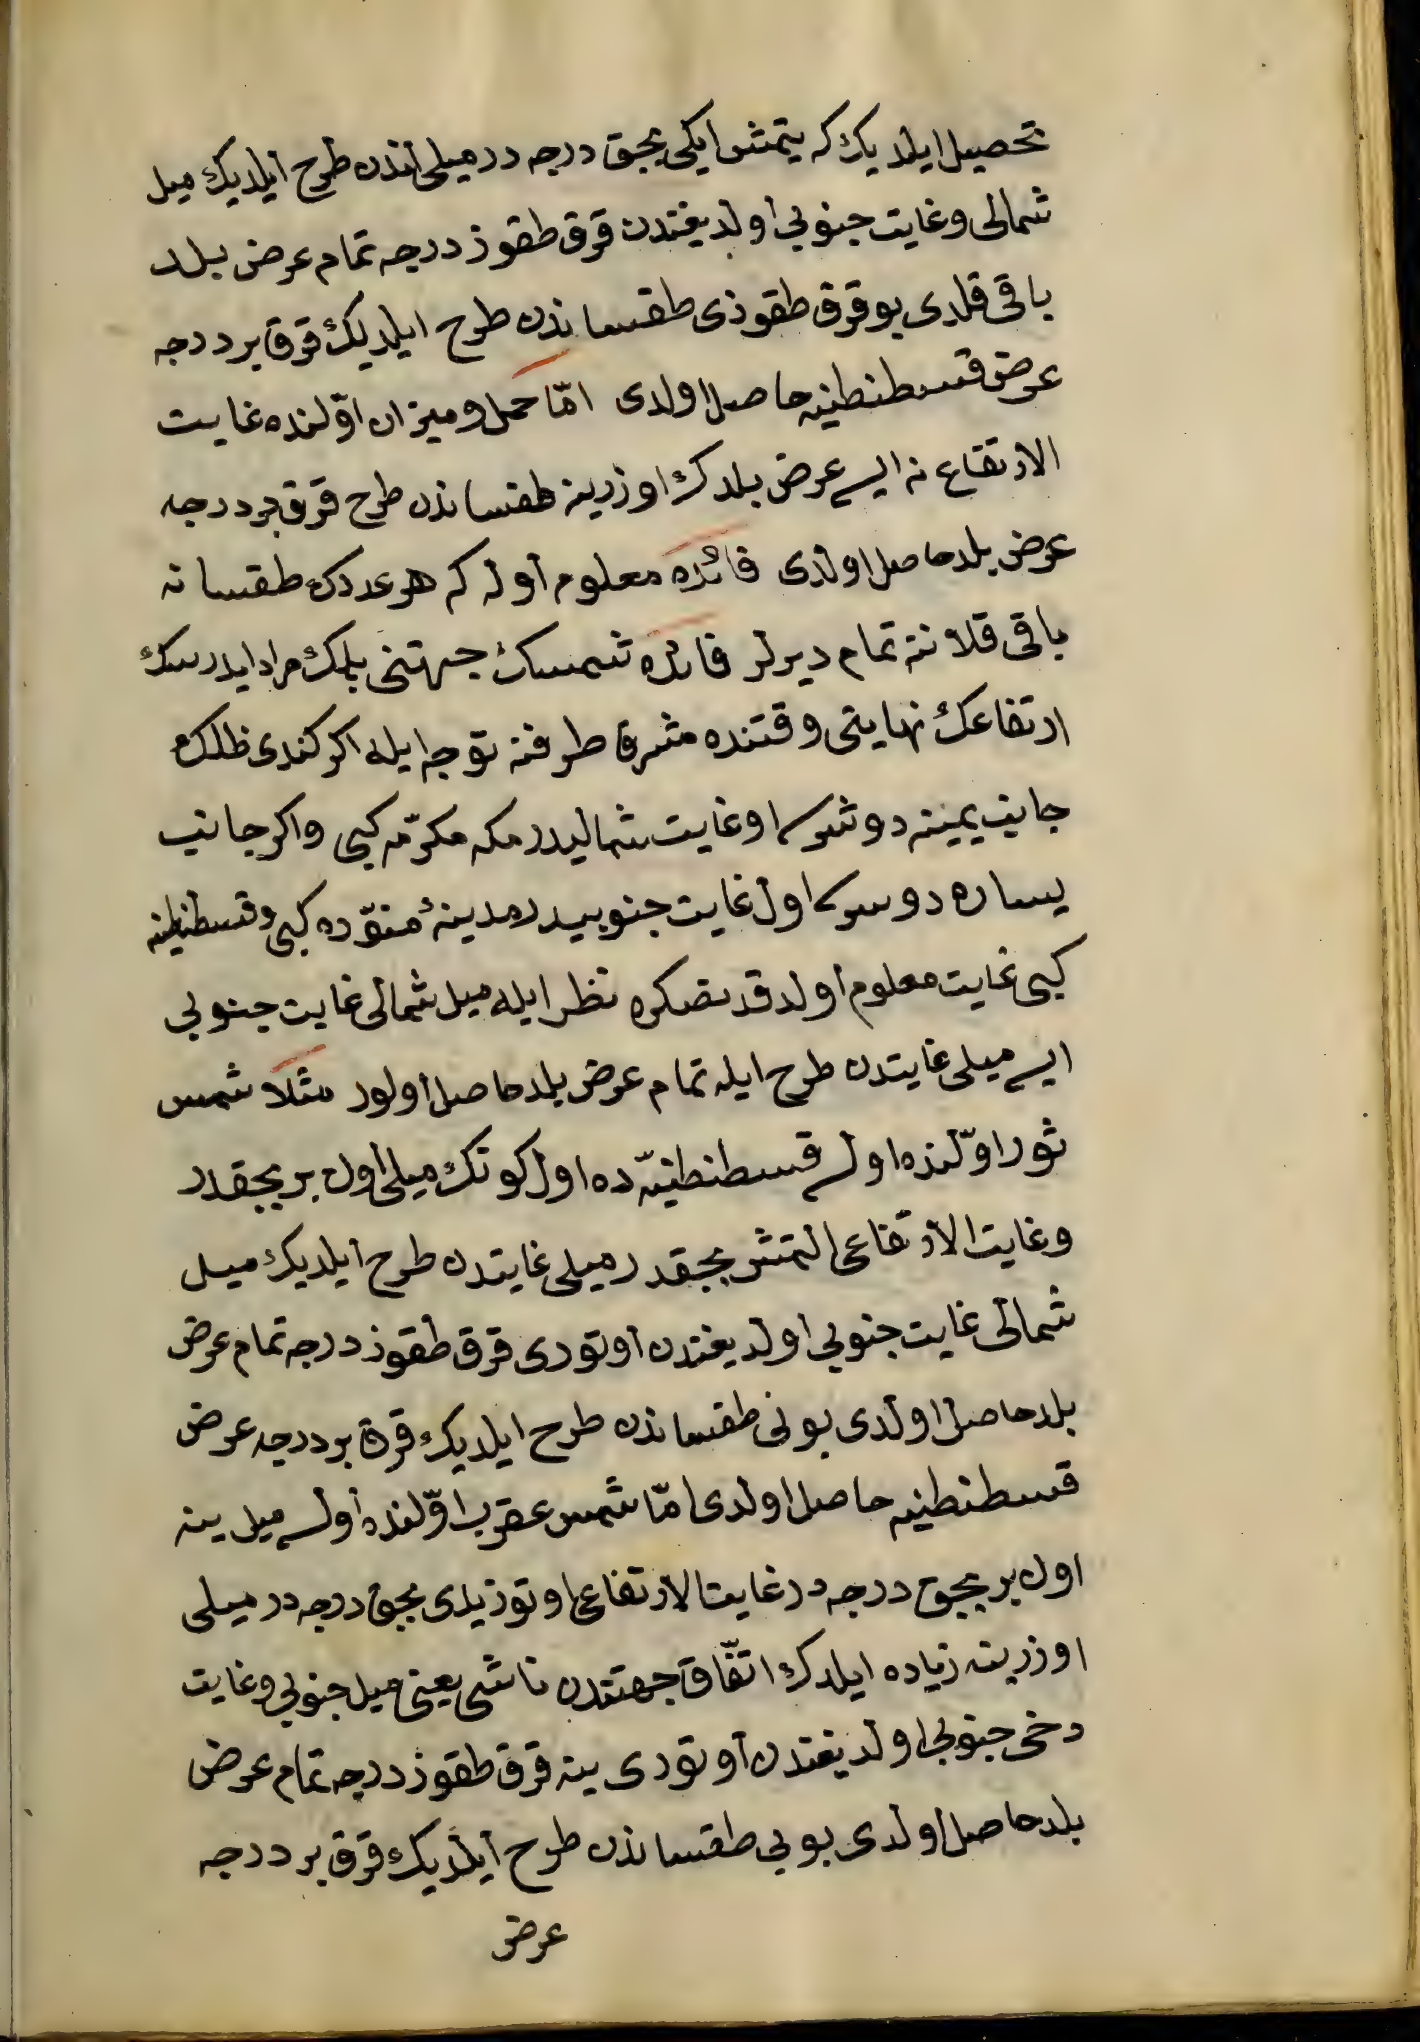 تحصیل ایلدیك كه یتمش ایكی بجق درجه در میلی اندن طرح ایلدیك میل
شمالی و غایت جنوبی اولدیغندن قرق طقوز درجه تمام عرض بلد
باقی قلدی بو قرق طقوزی طقساندن طرح ایلدیك قرق بر درجه
عرض قسطنطنیه حاصل اولدی امّا حمل و میزان اوّلنده غایت
الارتفاع نه ایسه عرض بلدك اوزرینه طقساندن طرح قرق بر درجه
عرض بلد حاصل اولدی فائده معلوم اوله كه هر عددك طقسانه
باقی قلاننه تمام دیرلر فائده شمسك جهتنی بلمك مراد ایدرسك
ارتفاعك نهایتی وقتنده مشرق طرفنه توجه ایله اكر كندی ظلك
جانب یمینه دوشرسه اول غایت شمالیدر مكه مكرّمه كبی واكر جانب
یساره دوسرسه اول غایت جنوبیدر مدینهٔ منوّره كبی و قسطنطنیه
كبی غایت معلوم اولدقدنصكره نظر ایله میل شمالی غایت جنوبی
ایسه میلی غایتدن طرح ایله تمام عرض بلد حاصل اولور مثلا شمس
ثور اوّلنده اولسه قسطنطنیّه ده اول كونك میلی اون بر بجقدر
و غایت الارتفاعی التمش بجقدر میلی غایتدن طرح ایلدیك میل
شمالی غایت جنوبی اولدیغندن اوتوری قرق طقوز درجه تمام عرض
بلد حاصل اولدی بونی طقساندن طرح ایلدیك قرق بر درجه عرض
قسطنطنیه حاصل اولدی امّا شمس عقرب اوّلنده اولسه میل ینه
اون بر بجق درجه در غایت الارتفاعی اوتوزیدی بجق درجه در میلی
اوزرینه زیاده ایلدك اتّفاق جهتدن ناشی یعنی میل جنوبی و غایت
دخی جنوبی اولدیغندن اوتوری ینه قرق طقوز درجه تمام عرض
بلد حاصل اولدی بوبی طقساندن طرح ایلدیك قرق بر درجه
عرض